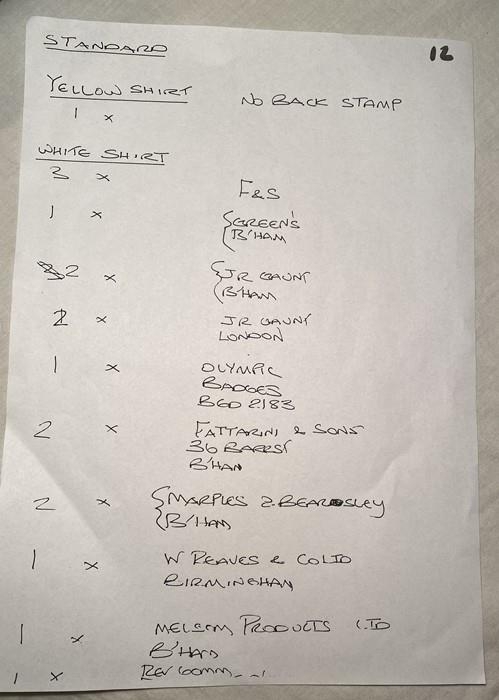 STANDARD
12
YELLOW SHIRT
1 x NO BACK STAMP
WHITE SHIRT
3 x F&S
1 x { GREEN'S
B'HAM
2 x { JR GAUNT
B'HAM
2 x JR GAUNT
LONDON
1 x OLYMPIC
BADGES
BGD 2183
2 x FATTARINI & SONS
36
B'HAM
2 x { MARPLES & BEARDSLEY
B'HAM
1 x W REAVES & CO LTD
BIRMINGHAM
1 x MELSOM PRODUCTS LTD
B'HAM
1 x REV COMM